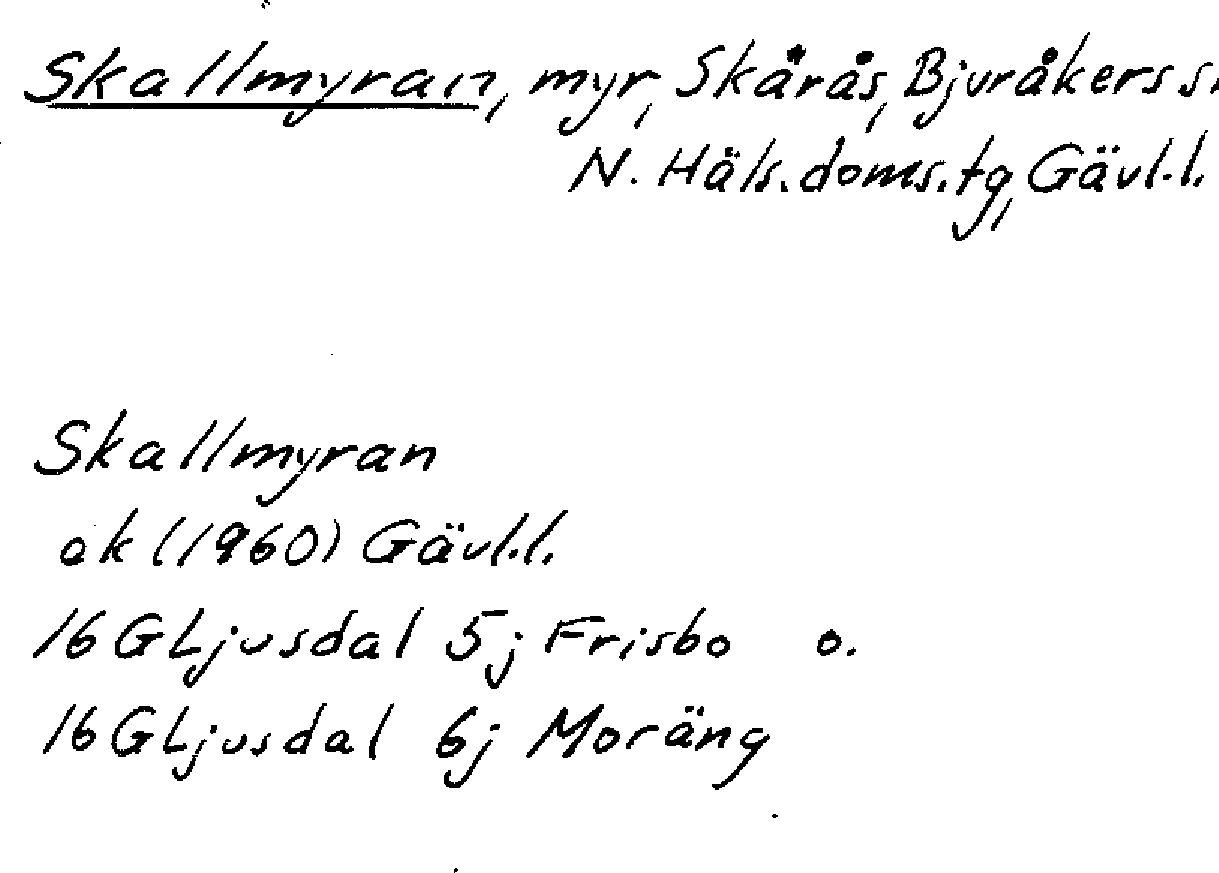 Skallmyran, myr, Skårås, Bjuråkers s.
N. Häls. doms.tg, Gävl.l.
Skallmyran
ek (1960) Gävl.l.
16G Ljusdal 5j Frisbo o.
16G Ljusdal 6j Moräng